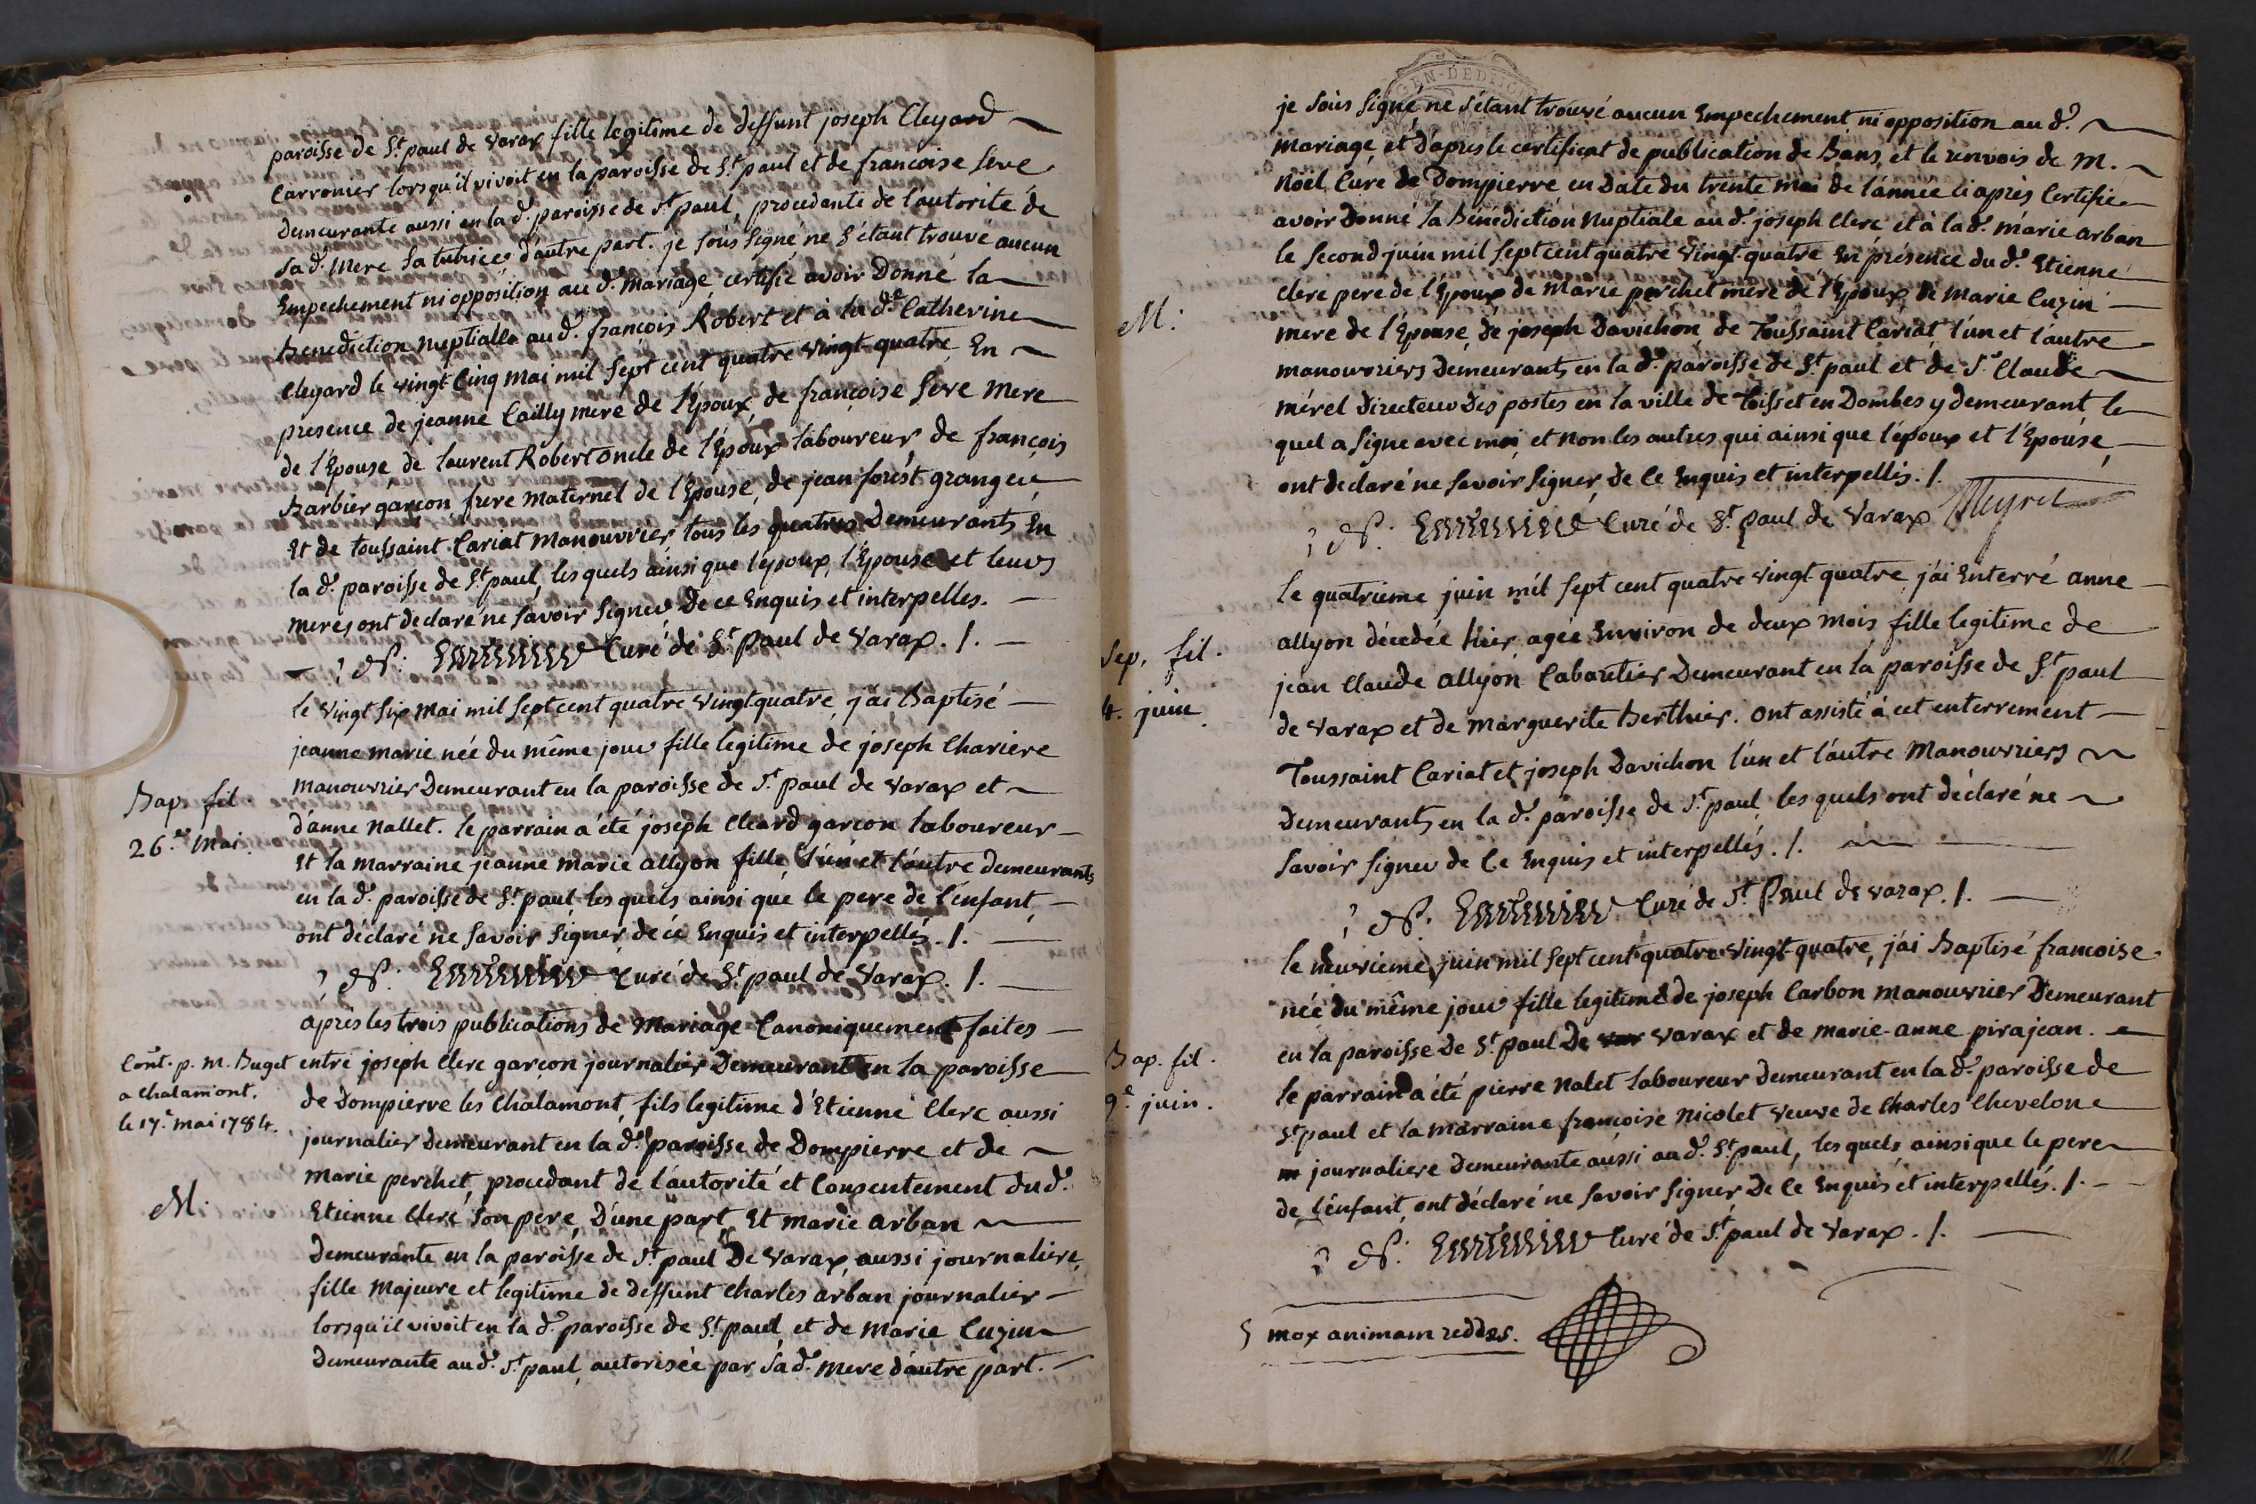 paroisse de St. paul de varax fille legitime de deffunt joseph Cleyard
Carronier lorsqu'il vivoit en la paroisse de St. paul et de francoise Seve
Demeurante aussi en la d. paroisse de St. paul, procedante de l'autorité de
Sa d. Mere Sa tutrice d'autre part. je sous signé ne s'étant trouvé aucun
Empechement ni opposition au d. Mariage certifie avoir Donné la
Benediction Nuptialle au d. françois Robert et à la de. Catherine
Cleyard le vingt Cinq Mai mil Sept cent quatre vingt quatre En
presence de jeanne Cailly mere de l'Epoux, de françoise Seve Mere
de l'Epouse de laurent Robert oncle de l'Epoux laboureur, de françois
Barbier garcon frere Maternel de l'Epouse, de jean forest granger
Et de toussaint Cariat Manouvrier tous les quatres Demeurants En
la d. paroisse de St. paul, les quels ainsi que l'époux, l'Epouse et leurs
meres ont declaré ne Savoir Signer de ce Enquis et interpelles.
Curé de St. Paul de Varax. /.
le vingt six mai mil sept cent quatre vingt quatre j'ai Baptisé
jeanne marie née du même jour fille legitime de joseph Chariere
Bap. fil.
26.e Mai.
manouvrier Demeurant en la paroisse de St. paul de varax et
d'anne Nallet. le parrain a été joseph Cleard garcon laboureur
Et la Marraine jeanne marie allyon fille l'un et l'autre demeurants
en la d. paroisse de St. paul les quels ainsi que le pere de l'enfant,
ont déclaré ne Savoir Signer de ce Enquis et interpellés. /.
Curé de St. paul de Varax. /.
après les trois publications de Mariage Canoniquement faites
Cont. p. M. Buget
a Chalamont.
le 17.e mai 1784.
entre joseph Clerc garçon journalier Demeurant en la paroisse
de Dompierre les Chalamont, fils legitime d'Etienne Clerc aussi
journalier demeurant en la d. paroisse de Dompierre et de
marie perchet, procedant de l'autorité et Consentement du d.
M.
Etienne Clerc Son pere, D'une part, Et marie arban
Demeurante en la paroisse de St. paul De varax, aussi journaliere,
fille Majeure et legitime de deffunt charles arban journalier
lorsqu'il vivoit en la d. paroisse de St. paul, et de Marie Cuzin
Demeurante au d. St. paul, autorisée par Sa d. Mere d'autre part.
je sous signé, ne s'étant trouvé aucun Empechement ni opposition au d.
mariage, et d'apres le certificat de publication de Bans, et le renvois de M.
Noël Curé de Dompierre en Date du trente mai de l'année ci après Certifie
avoir Donné la Bénédiction Nuptiale au d. joseph Clerc et à la d. marie arban
le Second juin mil sept cent quatre vingt quatre En présence du d. Etienne
M.
clerc pere de l'Epoux de Marie perchet mere de l'Epoux, de Marie Cuzin
mere de l'Epouse, de joseph Davichon, de Toussaint Cariat, l'un et l'autre
manouvriers Demeurants en la d. paroisse de St. paul et de Sr. Claude
mérel Directeur Des postes en la ville de Toisset en Dombes y demeurant le
quel a Signé avec moi, et non les autres qui ainsi que l'époux et l'Epouse,
ont declaré ne Savoir Signer, de Ce Enquis et interpellés. /.
Curé de St. paul de Varax
le quatrieme juin mil sept cent quatre vingt quatre j'ai Enterré anne
Sep. fil.
4. juin.
allyon décedée hier, agée Environ de deux mois fille legitime de
jean Claude allyon Cabartier Demeurant en la paroisse de St. paul
de varax et de Marguerite Berthier. ont assisté à cet enterrement
Toussaint Cariat et joseph Davichon l'un et l'autre Manouvriers
Demeurants en la d. paroisse de St. paul, les quels ont déclaré ne
Savoir Signer de Ce Enquis et interpellés. /.
Curé de St. Paul de varax. /.
le neuvieme juin mil sept cent quatre vingt quatre, j'ai Baptisé francoise
née du même jour fille legitime de joseph Carbon Manouvrier Demeurant
Bap. fil.
9.e juin.
en la paroisse de St. paul De var varax et de marie-anne pirajean.
le parrain a été pierre Nalet laboureur demeurant en la d. paroisse de
St. paul et la marraine françoise Nicolet veuve de Charles Chevelon
journaliere Demeurante aussi au d. St. paul, les quels ainsi que le pere
de l'énfant, ont déclaré ne Savoir Signer De Ce Enquis et interpellés. /.
Curé de St. paul de Varax. /.
mox animam reddes.